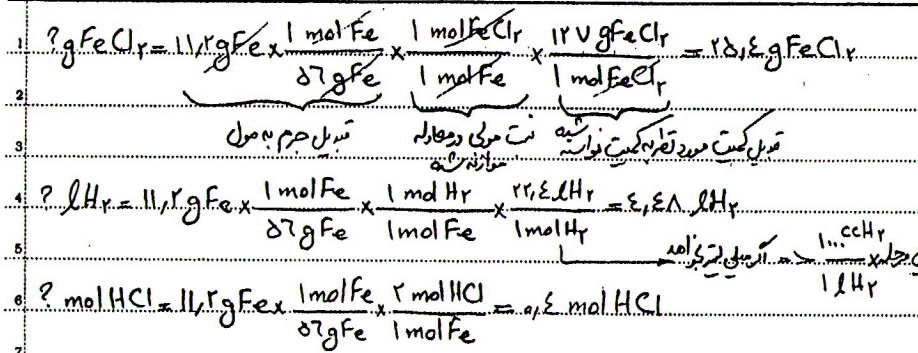 1 ?gFeCl۲ = ۱۱٫۲gFe × 1 mol Fe / ۵۶ gFe × 1 mol FeCl۲ / 1 mol Fe × ۱۲۷ gFeCl۲ / 1 mol FeCl۲ = ۲۵٫۴ gFeCl۲
2
تبدیل جرم به مول نسبت مولی در معادله تبدیل کمیت مورد نظر به کمیت خواسته شده
3 موازنه شده
4 ? lH۲ = ۱۱٫۲ gFe × 1 mol Fe / ۵۶ gFe × 1 mol H۲ / 1 mol Fe × ۲۲٫۴ lH۲ / 1 mol H۲ = ۴٫۴۸ lH۲
5 اگر میلی لیتر بخواهد = × ۱۰۰۰ccH۲ / 1 lH۲
6 ? mol HCl = ۱۱٫۲ gFe × 1 mol Fe / ۵۶ gFe × ۲ mol HCl / 1 mol Fe = ۰٫۴ mol HCl
7